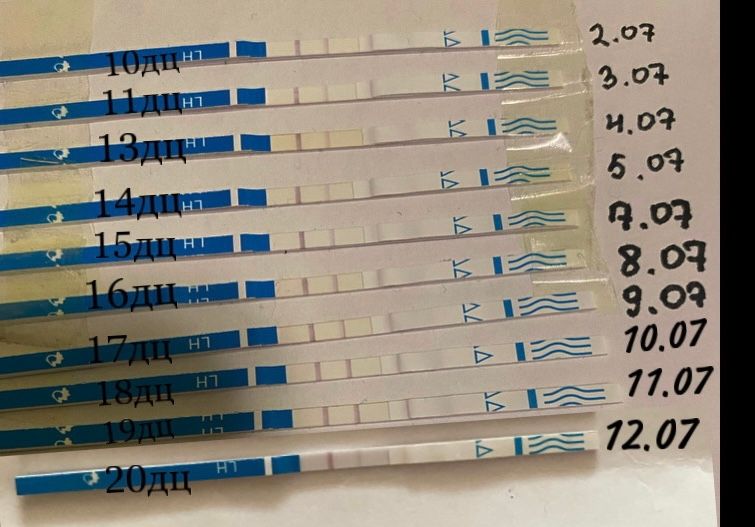 10дц LH 2.07
11дц LH 3.07
13дц LH 4.07
14дц LH 5.07
15дц LH 7.07
16дц LH 8.07
17дц LH 9.07
18дц LH 10.07
19дц LH 11.07
20дц LH 12.07